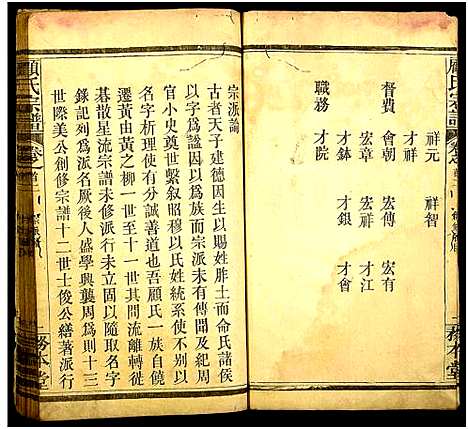 顧氏宗譜
祥元 祥智
才祥
督費 會朝 宏傳 宏有
宏章 宏祥 才江
才鉢 才銀 才會
職務 才院
務本堂
宗派論
古者天子建德因生以賜姓胙土而命氏諸侯
以字為謚因以為族而宗派未有傳聞及紀周
官小史奠繫叙昭穆以氏姓統系使不別以
名字析理使有分誠善道也吾顧氏一族自饒
遷黄由黄之柳一世至十一世其間流離轉徙
碁散星流宗譜未修派行未立固以隨取名字
錄記列為派名厥後人盛學興襲周為則十三
世際美公創修宗譜十二世士俊公繕著派行
顧氏宗譜
卷之首
務本堂